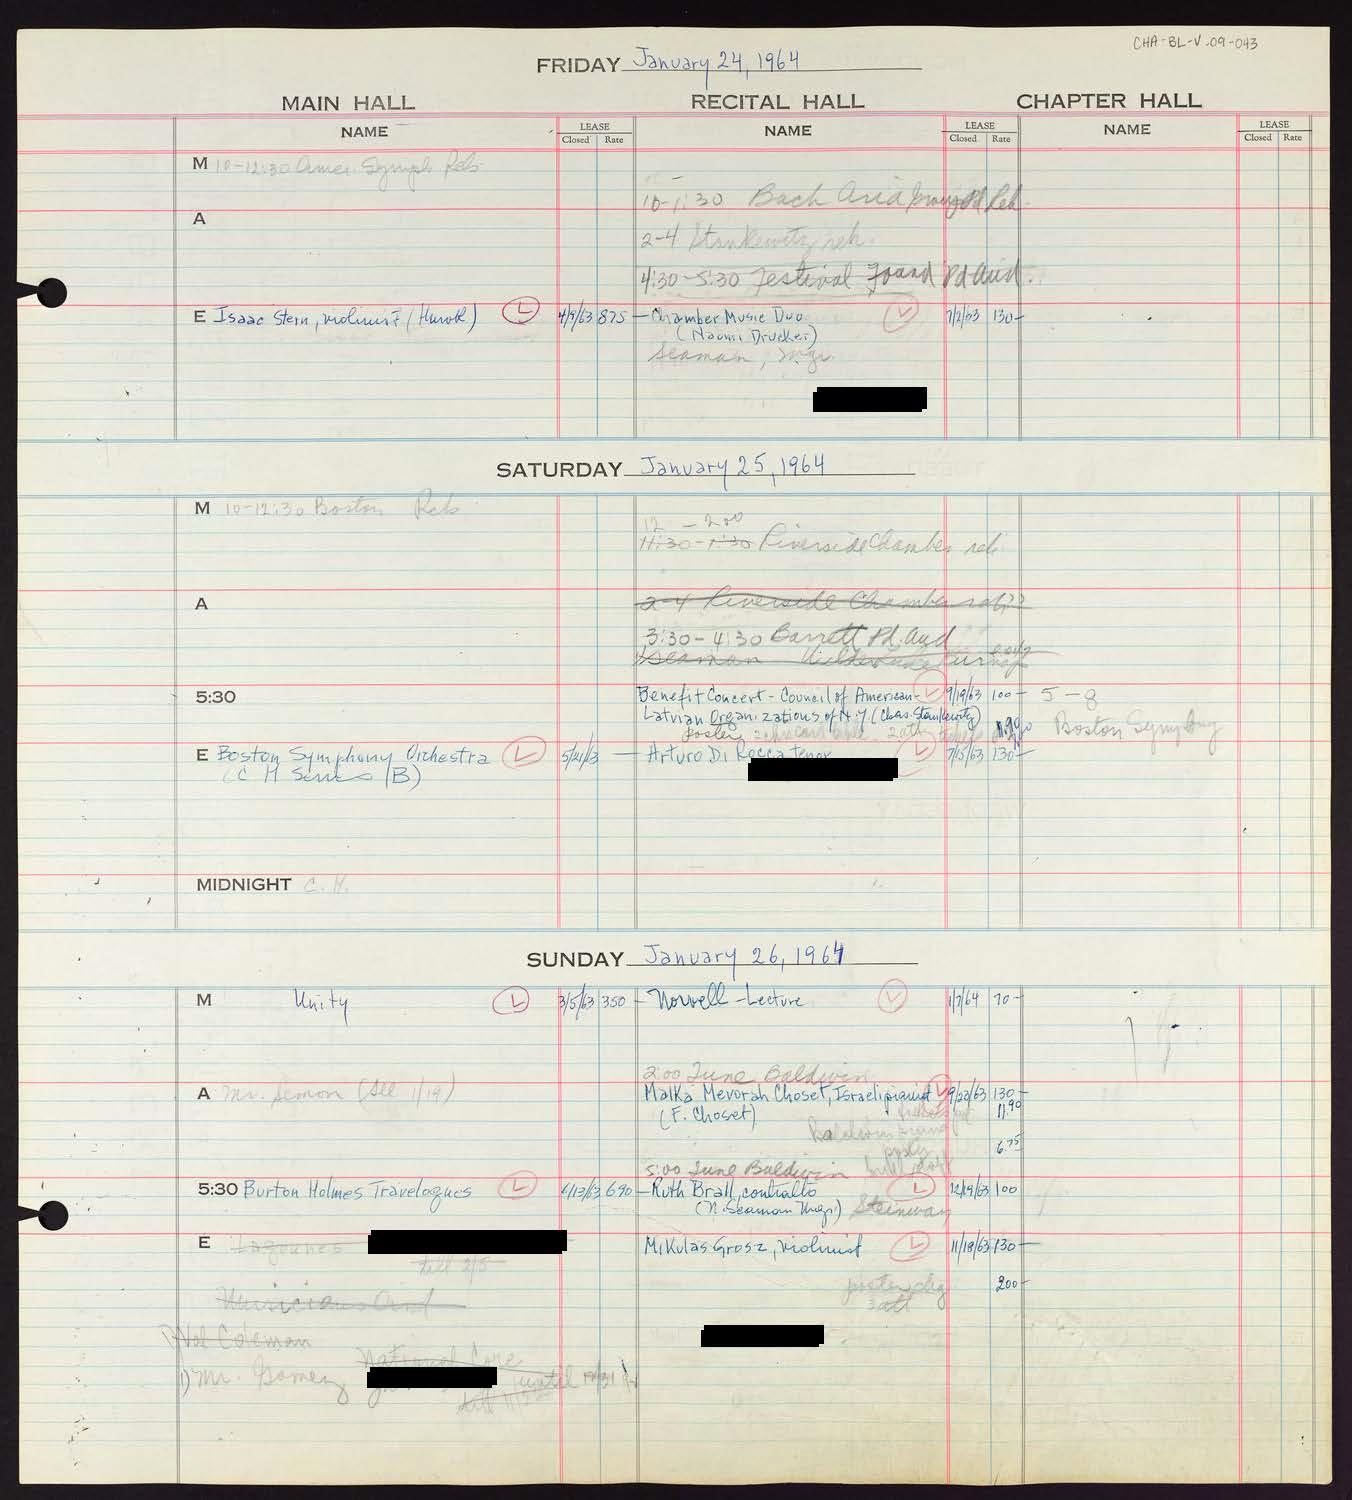 CHA-BL-V-09-043
FRIDAY January 24, 1964
MAIN HALL RECITAL HALL CHAPTER HALL
NAME LEASE Closed Rate NAME LEASE Closed Rate NAME LEASE Closed Rate
M 10-12:30 Amer. Symph Reh
10-1:30 Bach Aria Group Pd Reh.
A
2-4 Stankewitz reh.
4:30-5:30 Festival Found Pd Aud.
E Isaac Stern, violinist (Hurok) L 4/9/63 875- Chamber Music Duo L 7/2/63 130-
(Naomi Drucker)
Seaman, Mgr.
SATURDAY January 25, 1964
M 10-12:30 Boston Reh
12 - 2:00
11:30-1:30 Riverside Chamber reh
A 2-4 Riverside Chamber reh??
3:30-4:30 Barrett Pd. Aud
Seaman
5:30 Benefit Concert - Council of American- L 9/19/63 100- 5-8
Latvian Organizations of N.Y. (Chas. Stankewitz) Boston Symphony
poster
E Boston Symphony Orchestra L 5/21/63 - Arturo Di Rocca tenor L 7/15/63 130-
(C H Series (B)
MIDNIGHT C. H.
SUNDAY January 26, 1964
M Unity L 3/5/63 350- Norvell-Lecture L 1/7/64 70-
2:00 June Baldwin
A Mr. Semon (see 1/19) Malka Mevorah Choset, Israeli pianist L 9/22/63 130-
(F. Choset) 11.90
Baldwin
6.75
5:00 June Baldwin
5:30 Burton Holmes Travelogues L 4/13/63 690- Ruth Brall, contralto L 12/19/63 100
(N. Seaman Mgr.) Steinway
E Mikulas Grosz, violinist L 11/18/63 130-
till 2/5
poster chg 200-
Musicians Aid
Val Coleman
National Core
1) Mr. Gomez until